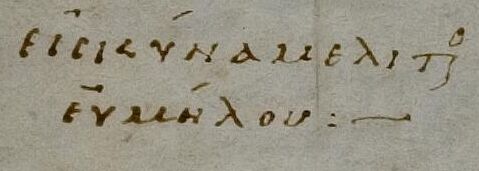 εἰς κύνα μελιτ°
εὐμήλου :—